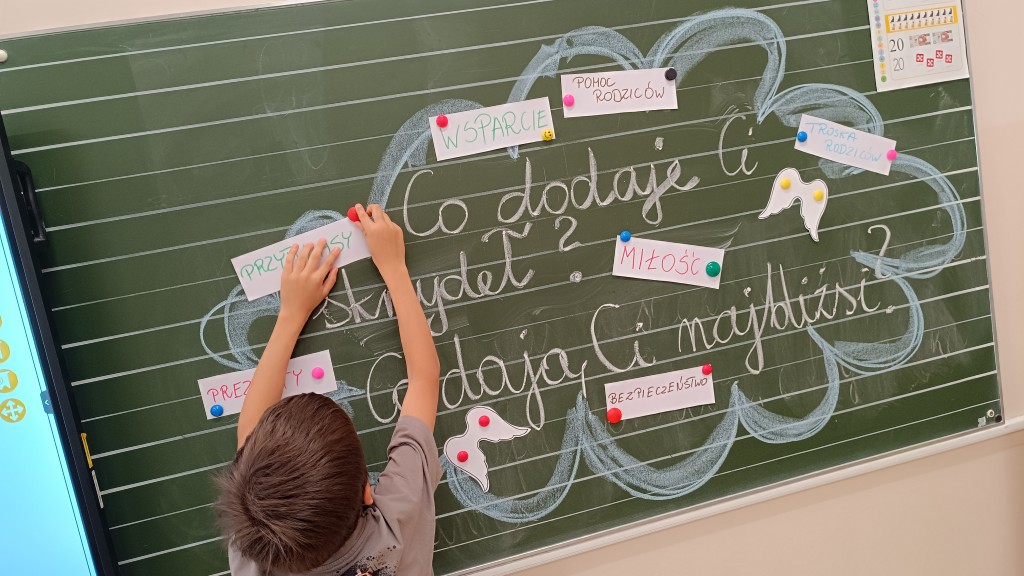 POMOC
RODZICÓW
WSPARCIE
TROSKA
RODZICÓW
20
20
Co dodaje Ci
skrzydeł?
MIŁOŚĆ
Co dają Ci najbliżsi?
BEZPIECZEŃSTWO